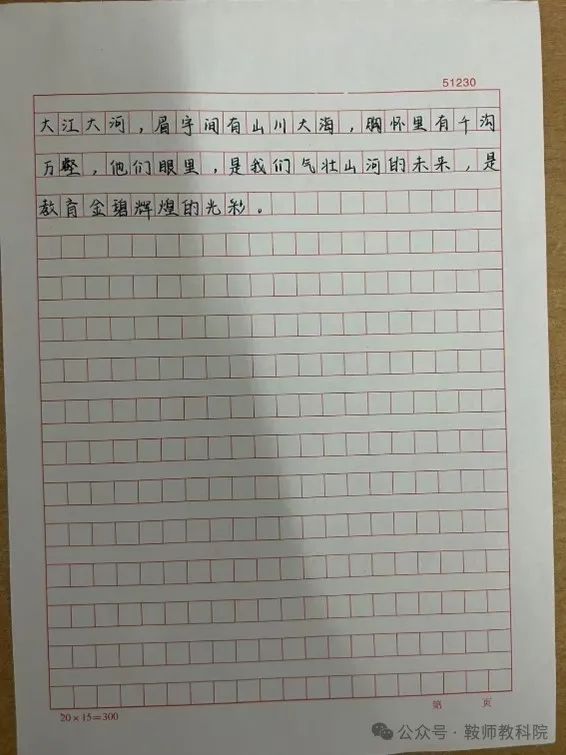 51230
大江大河，眉宇间有山川大海，胸怀里有千沟
万壑，他们眼里，是我们气壮山河的未来，是
教育金碧辉煌的光彩。
20×15=300
第 页
公众号·鞍师教科院